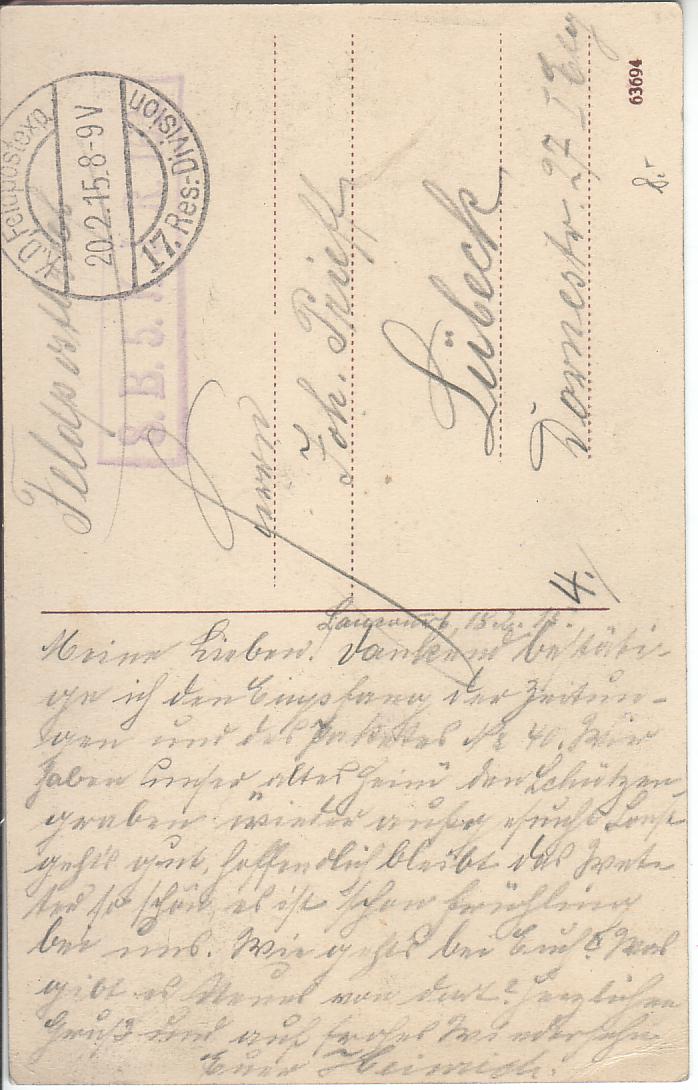 Feldpostkarte
K.D. Feldpostexp.
20.2.15.8-9V
17. Res.-Division
S. B. 5.
Herrn
Joh. Prieß
Lübeck
Dornestr. 27 I Etg
63694
8.-
4.
15.2.15.
Meine Lieben! Dankend bestäti-
ge ich den Empfang der Zeitun-
gen und des Paketes No 40. Wir
haben unser „altes Heim" den Schützen
graben wieder aufgesucht. Sonst
geht's gut, hoffendlich bleibt das Wet-
ter so schön, es ist schon Frühling
bei uns. Wie gehts bei Euch? Was
gibt es Neues von dort? Herzlichen
Gruß und auf frohes Wiedersehn
Euer Heinrich.